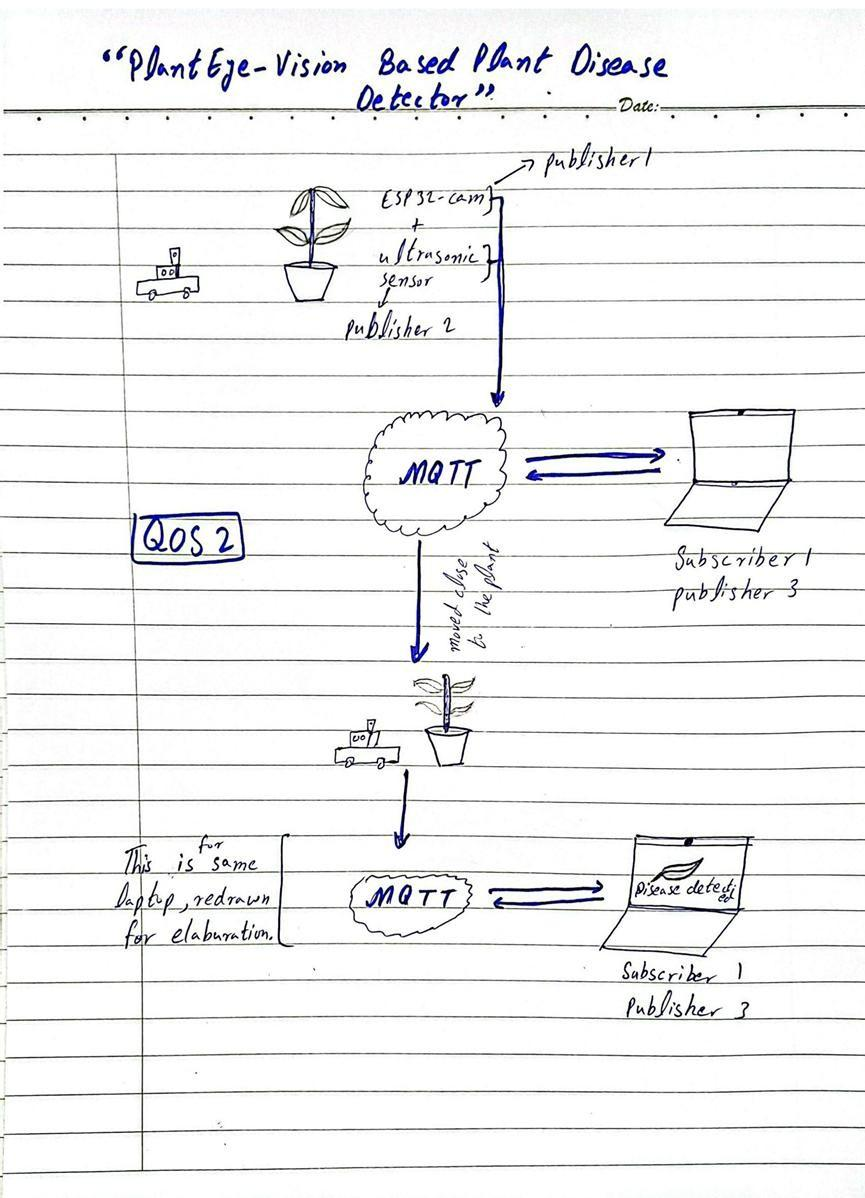 "PlantEye-Vision Based Plant Disease
Detector"
Date:
publisher 1
ESP32-cam
+
ultrasonic
sensor
publisher 2
MQTT
QOS 2
Subscriber 1
publisher 3
moved close
to the plant
for
This is same
laptop, redrawn
for elaburation.
MQTT
Disease detecti
ed
Subscriber 1
Publisher 3